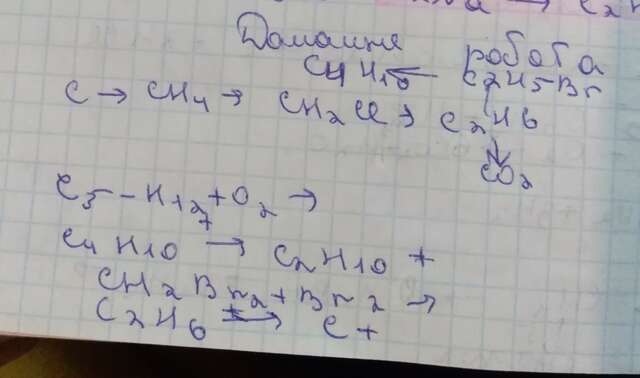 Домашнє робота
C4H10 ← C2H5Br
C → CH4 → CH2Cl → C2H6
↓
CO2
C5-H12+O2 →
C4H10 → C2H10 +
CH2Br2+Br2 →
C2H6 → C +